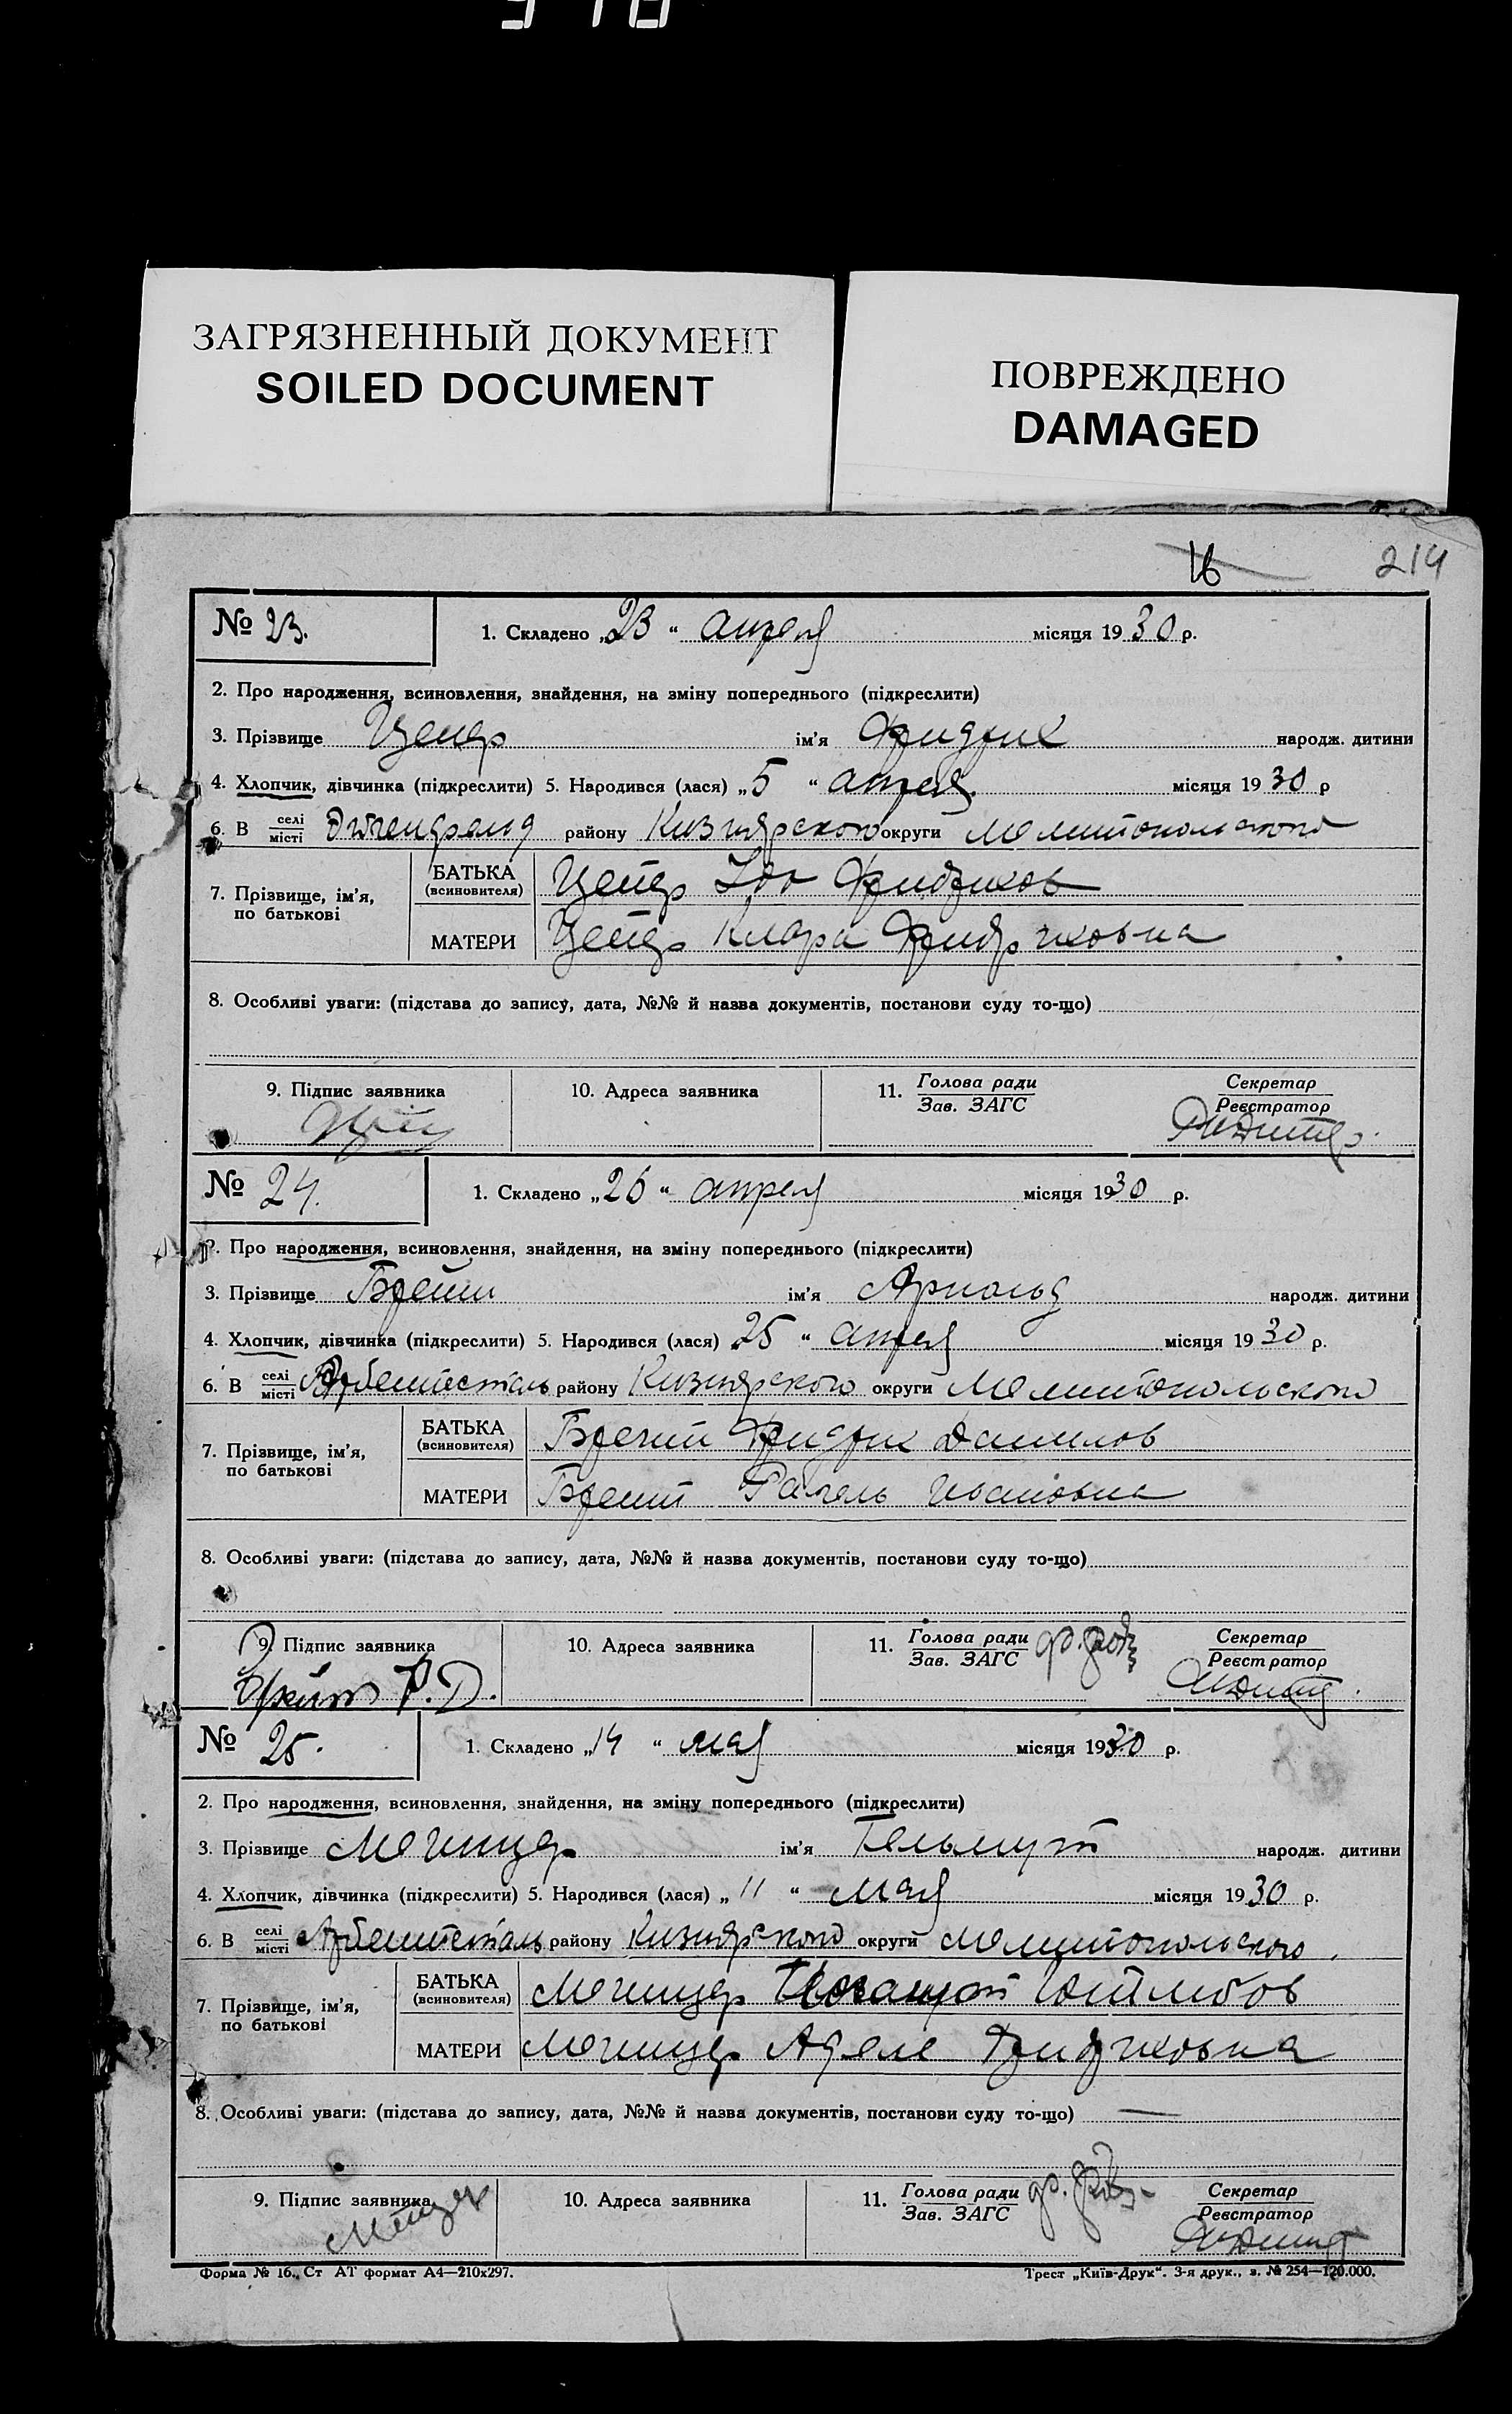 ЗАГРЯЗНЕННЫЙ ДОКУМЕНТ
SOILED DOCUMENT
ПОВРЕЖДЕНО
DAMAGED
16
214
№ 23.
1. Складено „23“ апреля місяця 1930 р.
2. Про народження, всиновлення, знайдення, на зміну попереднього (підкреслити)
3. Прізвище ім'я Фридрих народж. дитини
4. Хлопчик, дівчинка (підкреслити) 5. Народився (лася) „5“ апреля місяця 1930 р
6. В селі місті району Кизиярского округи Мелитопольского
7. Прізвище, ім'я, по батькові
БАТЬКА (всиновителя)
МАТЕРИ Клара
8. Особливі уваги: (підстава до запису, дата, №№ й назва документів, постанови суду то-що)
9. Підпис заявника
10. Адреса заявника
11. Голова ради Зав. ЗАГС
Секретар Реєстратор
№ 24.
1. Складено „26“ апреля місяця 1930 р.
2. Про народження, всиновлення, знайдення, на зміну попереднього (підкреслити)
3. Прізвище ім'я Арнольд народж. дитини
4. Хлопчик, дівчинка (підкреслити) 5. Народився (лася) „25“ апреля місяця 1930 р.
6. В селі місті району Кизиярского округи Мелитопольского
7. Прізвище, ім'я, по батькові
БАТЬКА (всиновителя) Фридрих
МАТЕРИ Ивановна
8. Особливі уваги: (підстава до запису, дата, №№ й назва документів, постанови суду то-що)
9. Підпис заявника
10. Адреса заявника
11. Голова ради Зав. ЗАГС
Секретар Реєстратор
№ 25.
1. Складено „14“ мая місяця 1930 р.
2. Про народження, всиновлення, знайдення, на зміну попереднього (підкреслити)
3. Прізвище ім'я Гельмут народж. дитини
4. Хлопчик, дівчинка (підкреслити) 5. Народився (лася) „11“ мая місяця 1930 р.
6. В селі місті району Кизиярского округи Мелитопольского
7. Прізвище, ім'я, по батькові
БАТЬКА (всиновителя)
МАТЕРИ
8. Особливі уваги: (підстава до запису, дата, №№ й назва документів, постанови суду то-що)
9. Підпис заявника
10. Адреса заявника
11. Голова ради Зав. ЗАГС
Секретар Реєстратор
Форма № 16. Ст АТ формат А4—210х297.
Трест „Київ-Друк“. 3-я друк., з. № 254—120.000.